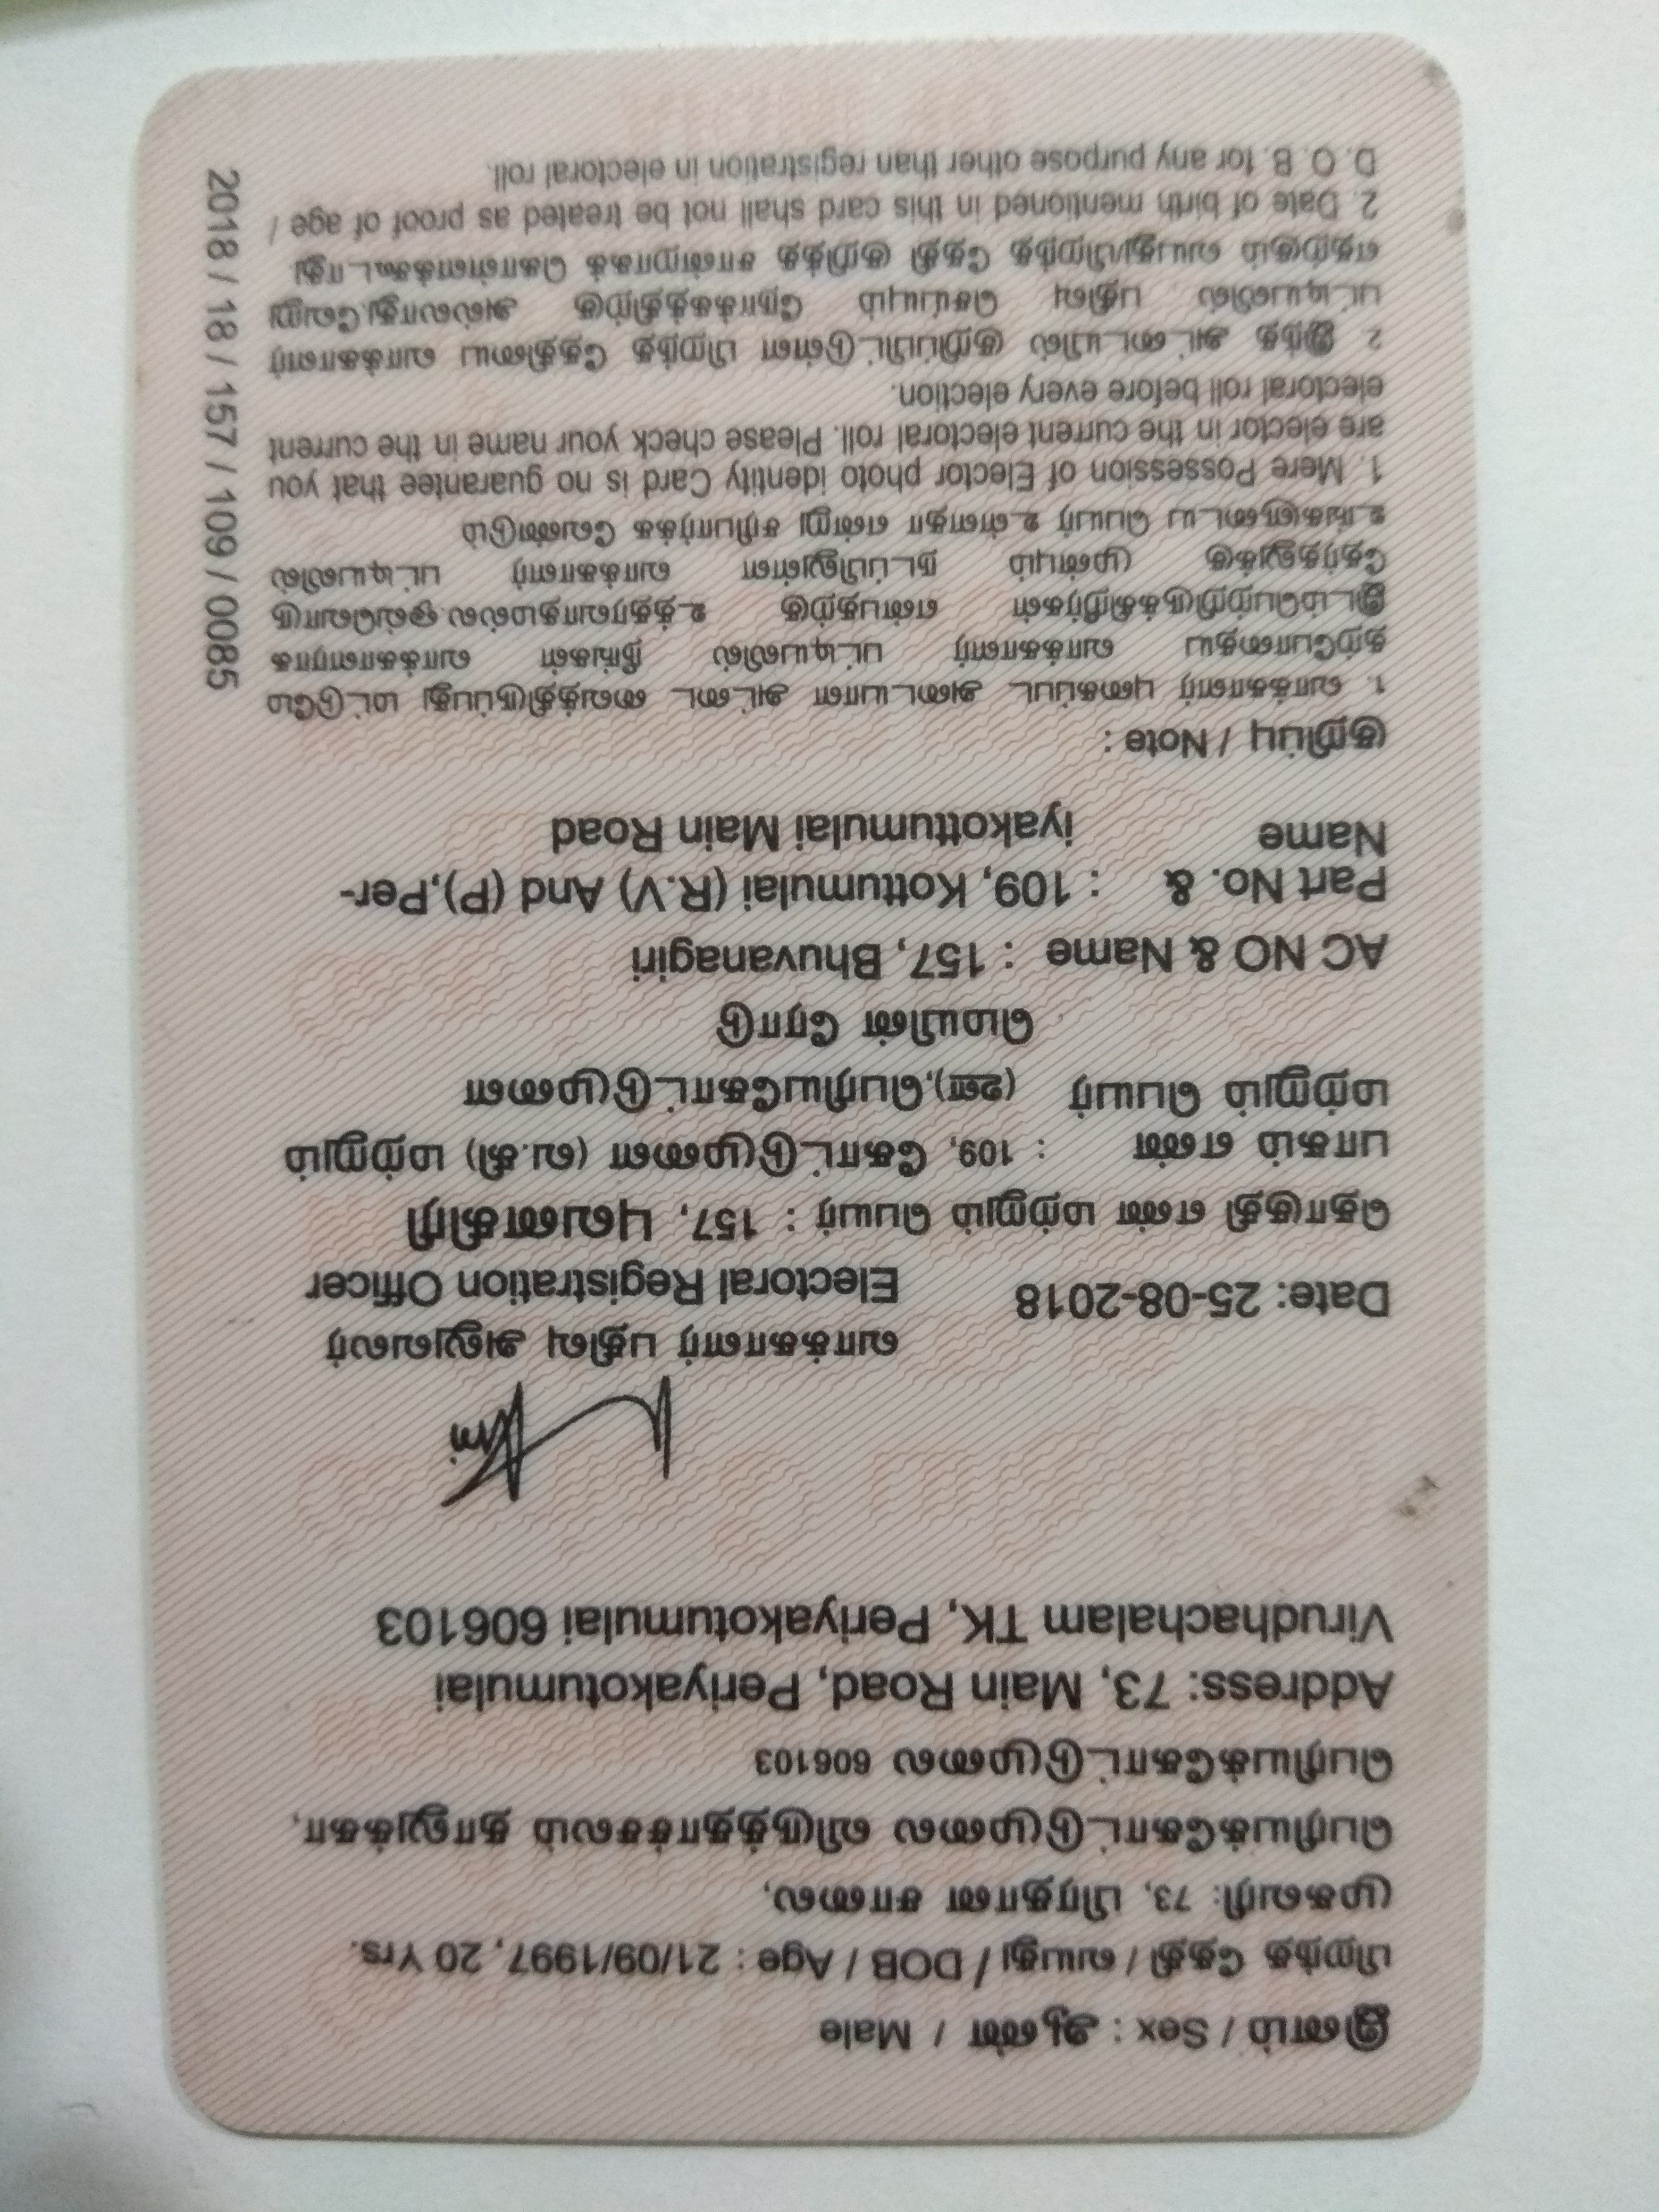 இனம் / Sex : ஆண் / Male
பிறந்த தேதி / வயது / DOB / Age : 21/09/1997, 20 Yrs.
முகவரி: 73, பிரதான சாலை,
பெரியக்கோட்டுமுலை விருத்தாச்சலம் தாலுக்கா,
பெரியக்கோட்டுமுலை 606103
Address: 73, Main Road, Periyakotumulai
Virudhachalam TK, Periyakotumulai 606103
வாக்காளர் பதிவு அலுவலர்
Date: 25-08-2018 Electoral Registration Officer
தொகுதி எண் மற்றும் பெயர் : 157, புவனகிரி
பாகம் எண் : 109, கோட்டுமுளை (வ.கி) மற்றும்
மற்றும் பெயர் (ஊ),பெரியகோட்டுமுளை
மெயின் ரோடு
AC NO & Name : 157, Bhuvanagiri
Part No. & : 109, Kottumulai (R.V) And (P),Per-
Name iyakottumulai Main Road
குறிப்பு / Note :
1. வாக்காளர் புகைப்பட அடையாள அட்டை வைத்திருப்பது மட்டுமே
தற்போதைய வாக்காளர் பட்டியலில் நீங்கள் வாக்காளராக
இடம்பெற்றிருக்கிறீர்கள் என்பதற்கு உத்தரவாதமல்ல.ஒவ்வொரு
தேர்தலுக்கு முன்பும் நடப்பிலுள்ள வாக்காளர் பட்டியலில்
உங்களுடைய பெயர் உள்ளதா என்று சரிபார்க்க வேண்டும்
1. Mere Possession of Elector photo identity Card is no guarantee that you
are elector in the current electoral roll. Please check your name in the current
electoral roll before every election.
2 இந்த அட்டையில் குறிப்பிட்டுள்ள பிறந்த தேதியை வாக்காளர்
பட்டியலில் பதிவு செய்யும் நோக்கத்திற்கு அல்லாது,வேறு
எதற்கும் வயது/பிறந்த தேதி குறித்த சான்றாகக் கொள்ளக்கூடாது
2. Date of birth mentioned in this card shall not be treated as proof of age /
D. O. B. for any purpose other than registration in electoral roll.
2018 / 18 / 157 / 109 / 0085